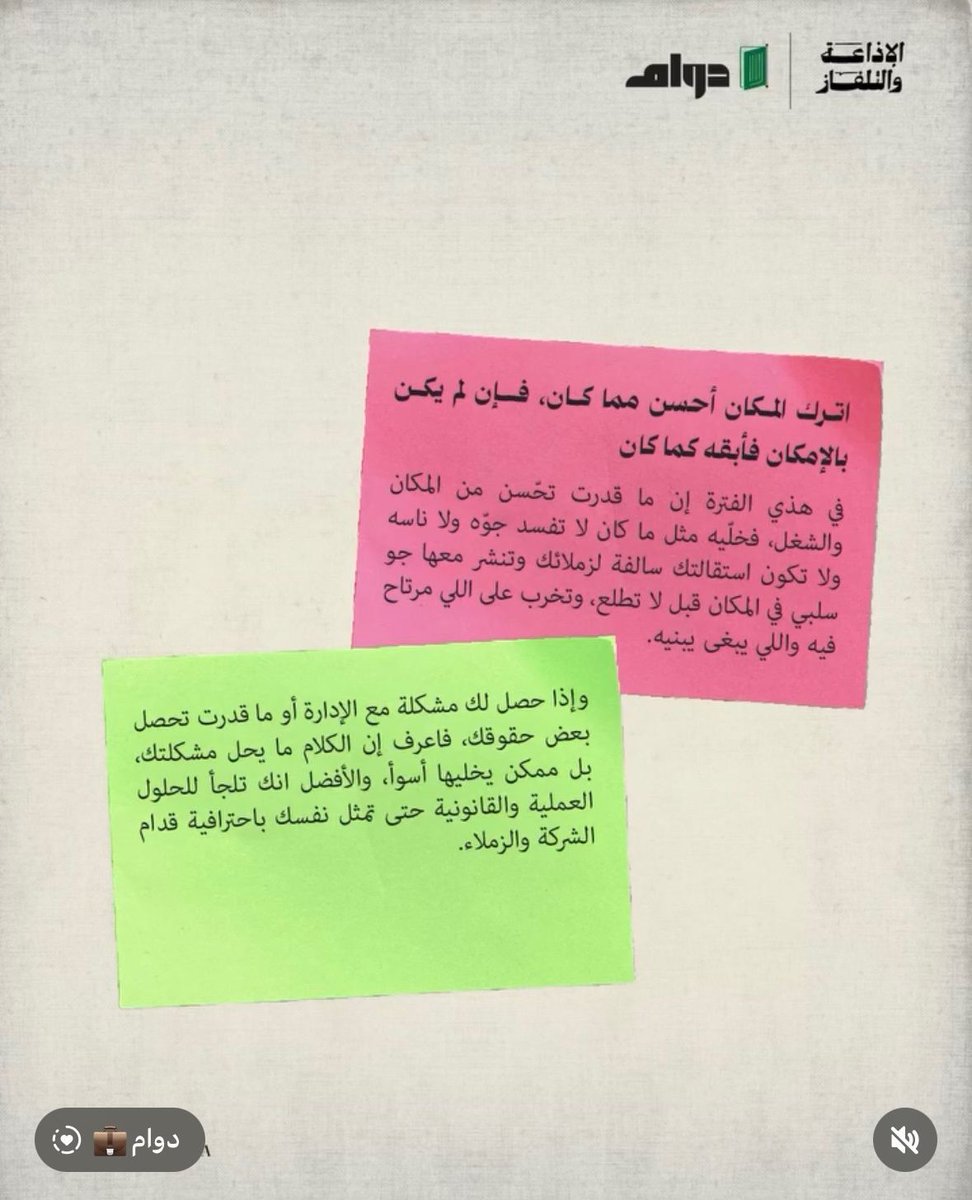 الإذاعة
والتلفاز
دوام
اترك المكان أحسن مما كان، فإن لم يكن
بالإمكان فأبقه كما كان
في هذي الفترة إن ما قدرت تحّسن من المكان
والشغل، فخلّيه مثل ما كان لا تفسد جوّه ولا ناسه
ولا تكون استقالتك سالفة لزملائك وتنشر معها جو
سلبي في المكان قبل لا تطلع، وتخرب على اللي مرتاح
فيه واللي يبغى يبنيه.
وإذا حصل لك مشكلة مع الإدارة أو ما قدرت تحصل
بعض حقوقك، فاعرف إن الكلام ما يحل مشكلتك،
بل ممكن يخليها أسوأ، والأفضل انك تلجأ للحلول
العملية والقانونية حتى تمثل نفسك باحترافية قدام
الشركة والزملاء.
دوام